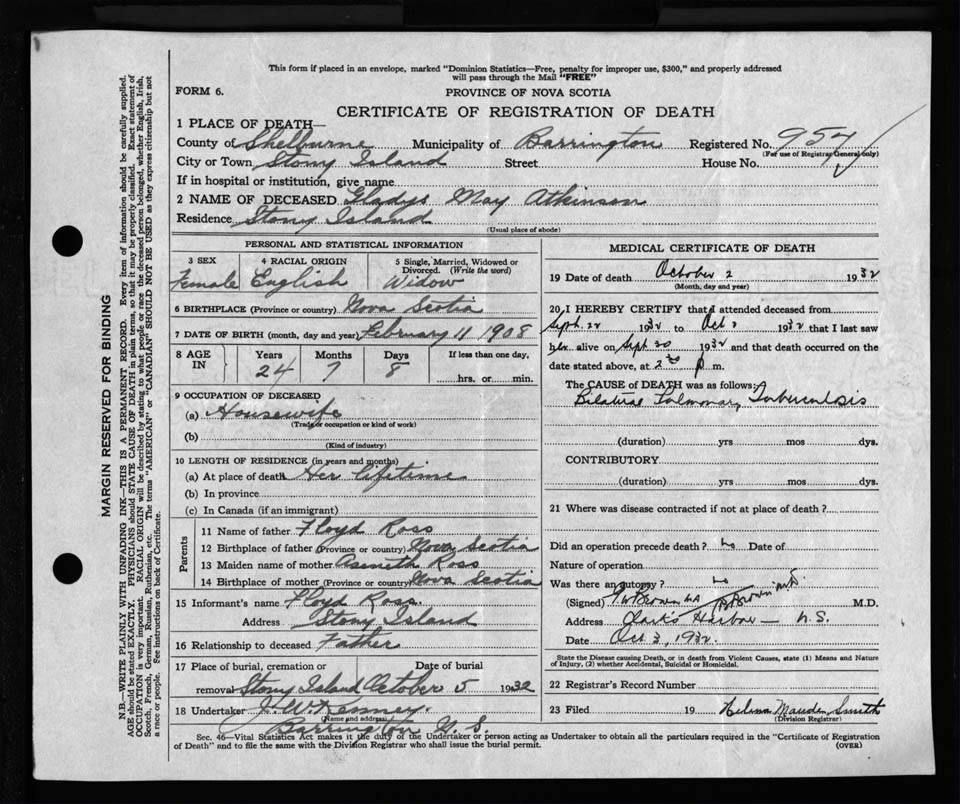 This form if placed in an envelope, marked "Dominion Statistics—Free, penalty for improper use, $300," and properly addressed
will pass through the Mail "FREE"
FORM 6. PROVINCE OF NOVA SCOTIA
CERTIFICATE OF REGISTRATION OF DEATH
1 PLACE OF DEATH—
County of Shelburne Municipality of Barrington Registered No. 954
(For use of Registrar General only)
City or Town Stony Island Street House No.
If in hospital or institution, give name
2 NAME OF DECEASED Gladys May Atkinson
Residence Stony Island
(Usual place of abode)
PERSONAL AND STATISTICAL INFORMATION
3 SEX 4 RACIAL ORIGIN 5 Single, Married, Widowed or
Divorced. (Write the word)
Female English Widow
6 BIRTHPLACE (Province or country) Nova Scotia
7 DATE OF BIRTH (month, day and year) February 11 1908
8 AGE IN Years Months Days If less than one day,
24 7 8 hrs. or min.
9 OCCUPATION OF DECEASED
(a) Housewife
(Trade or occupation or kind of work)
(b)
(Kind of industry)
10 LENGTH OF RESIDENCE (in years and months)
(a) At place of death Her lifetime
(b) In province
(c) In Canada (if an immigrant)
Parents
11 Name of father Floyd Ross
12 Birthplace of father (Province or country) Nova Scotia
13 Maiden name of mother Asenith Ross
14 Birthplace of mother (Province or country) Nova Scotia
15 Informant's name Floyd Ross
Address Stony Island
16 Relationship to deceased Father
17 Place of burial, cremation or Date of burial
removal Stony Island October 5 1932
18 Undertaker J. W. Kenney.
(Name and address)
Barrington N. S.
MEDICAL CERTIFICATE OF DEATH
19 Date of death October 2 1932
(Month, day and year)
20 I HEREBY CERTIFY that I attended deceased from
Sept. 22 1932 to Oct 2 1932 that I last saw
her alive on Sept 30 1932 and that death occurred on the
date stated above, at 2 30 p m.
The CAUSE of DEATH was as follows:
Bilateral Pulmonary Tuberculosis
(duration) yrs mos dys.
CONTRIBUTORY
(duration) yrs mos dys.
21 Where was disease contracted if not at place of death?
Did an operation precede death? no Date of
Nature of operation
Was there an autopsy? no
(Signed) Brown M.D.
Address Clark's Harbor — N.S.
Date Oct 3, 1932.
State the Disease causing Death, or in death from Violent Causes, state (1) Means and Nature
of Injury, (2) whether Accidental, Suicidal or Homicidal.
22 Registrar's Record Number
23 Filed 19 Helena Maude Smith
(Division Registrar)
Sec. 46—Vital Statistics Act makes it the duty of the Undertaker or person acting as Undertaker to obtain all the particulars required in the "Certificate of Registration
of Death" and to file the same with the Division Registrar who shall issue the burial permit.
(OVER)
MARGIN RESERVED FOR BINDING
N.B.—WRITE PLAINLY WITH UNFADING INK—THIS IS A PERMANENT RECORD. Every item of information should be carefully supplied.
AGE should be stated EXACTLY. PHYSICIANS should STATE CAUSE OF DEATH in plain terms, so that it may be properly classified. Exact statement of
OCCUPATION is very important. RACIAL ORIGIN will be described by stating to what people or race the deceased person belonged, whether English, Irish,
Scotch, French, German, Russian, Ruthenian, etc. The terms "AMERICAN" or "CANADIAN" SHOULD NOT BE USED as they express citizenship but not
a race or people. See instructions on back of Certificate.